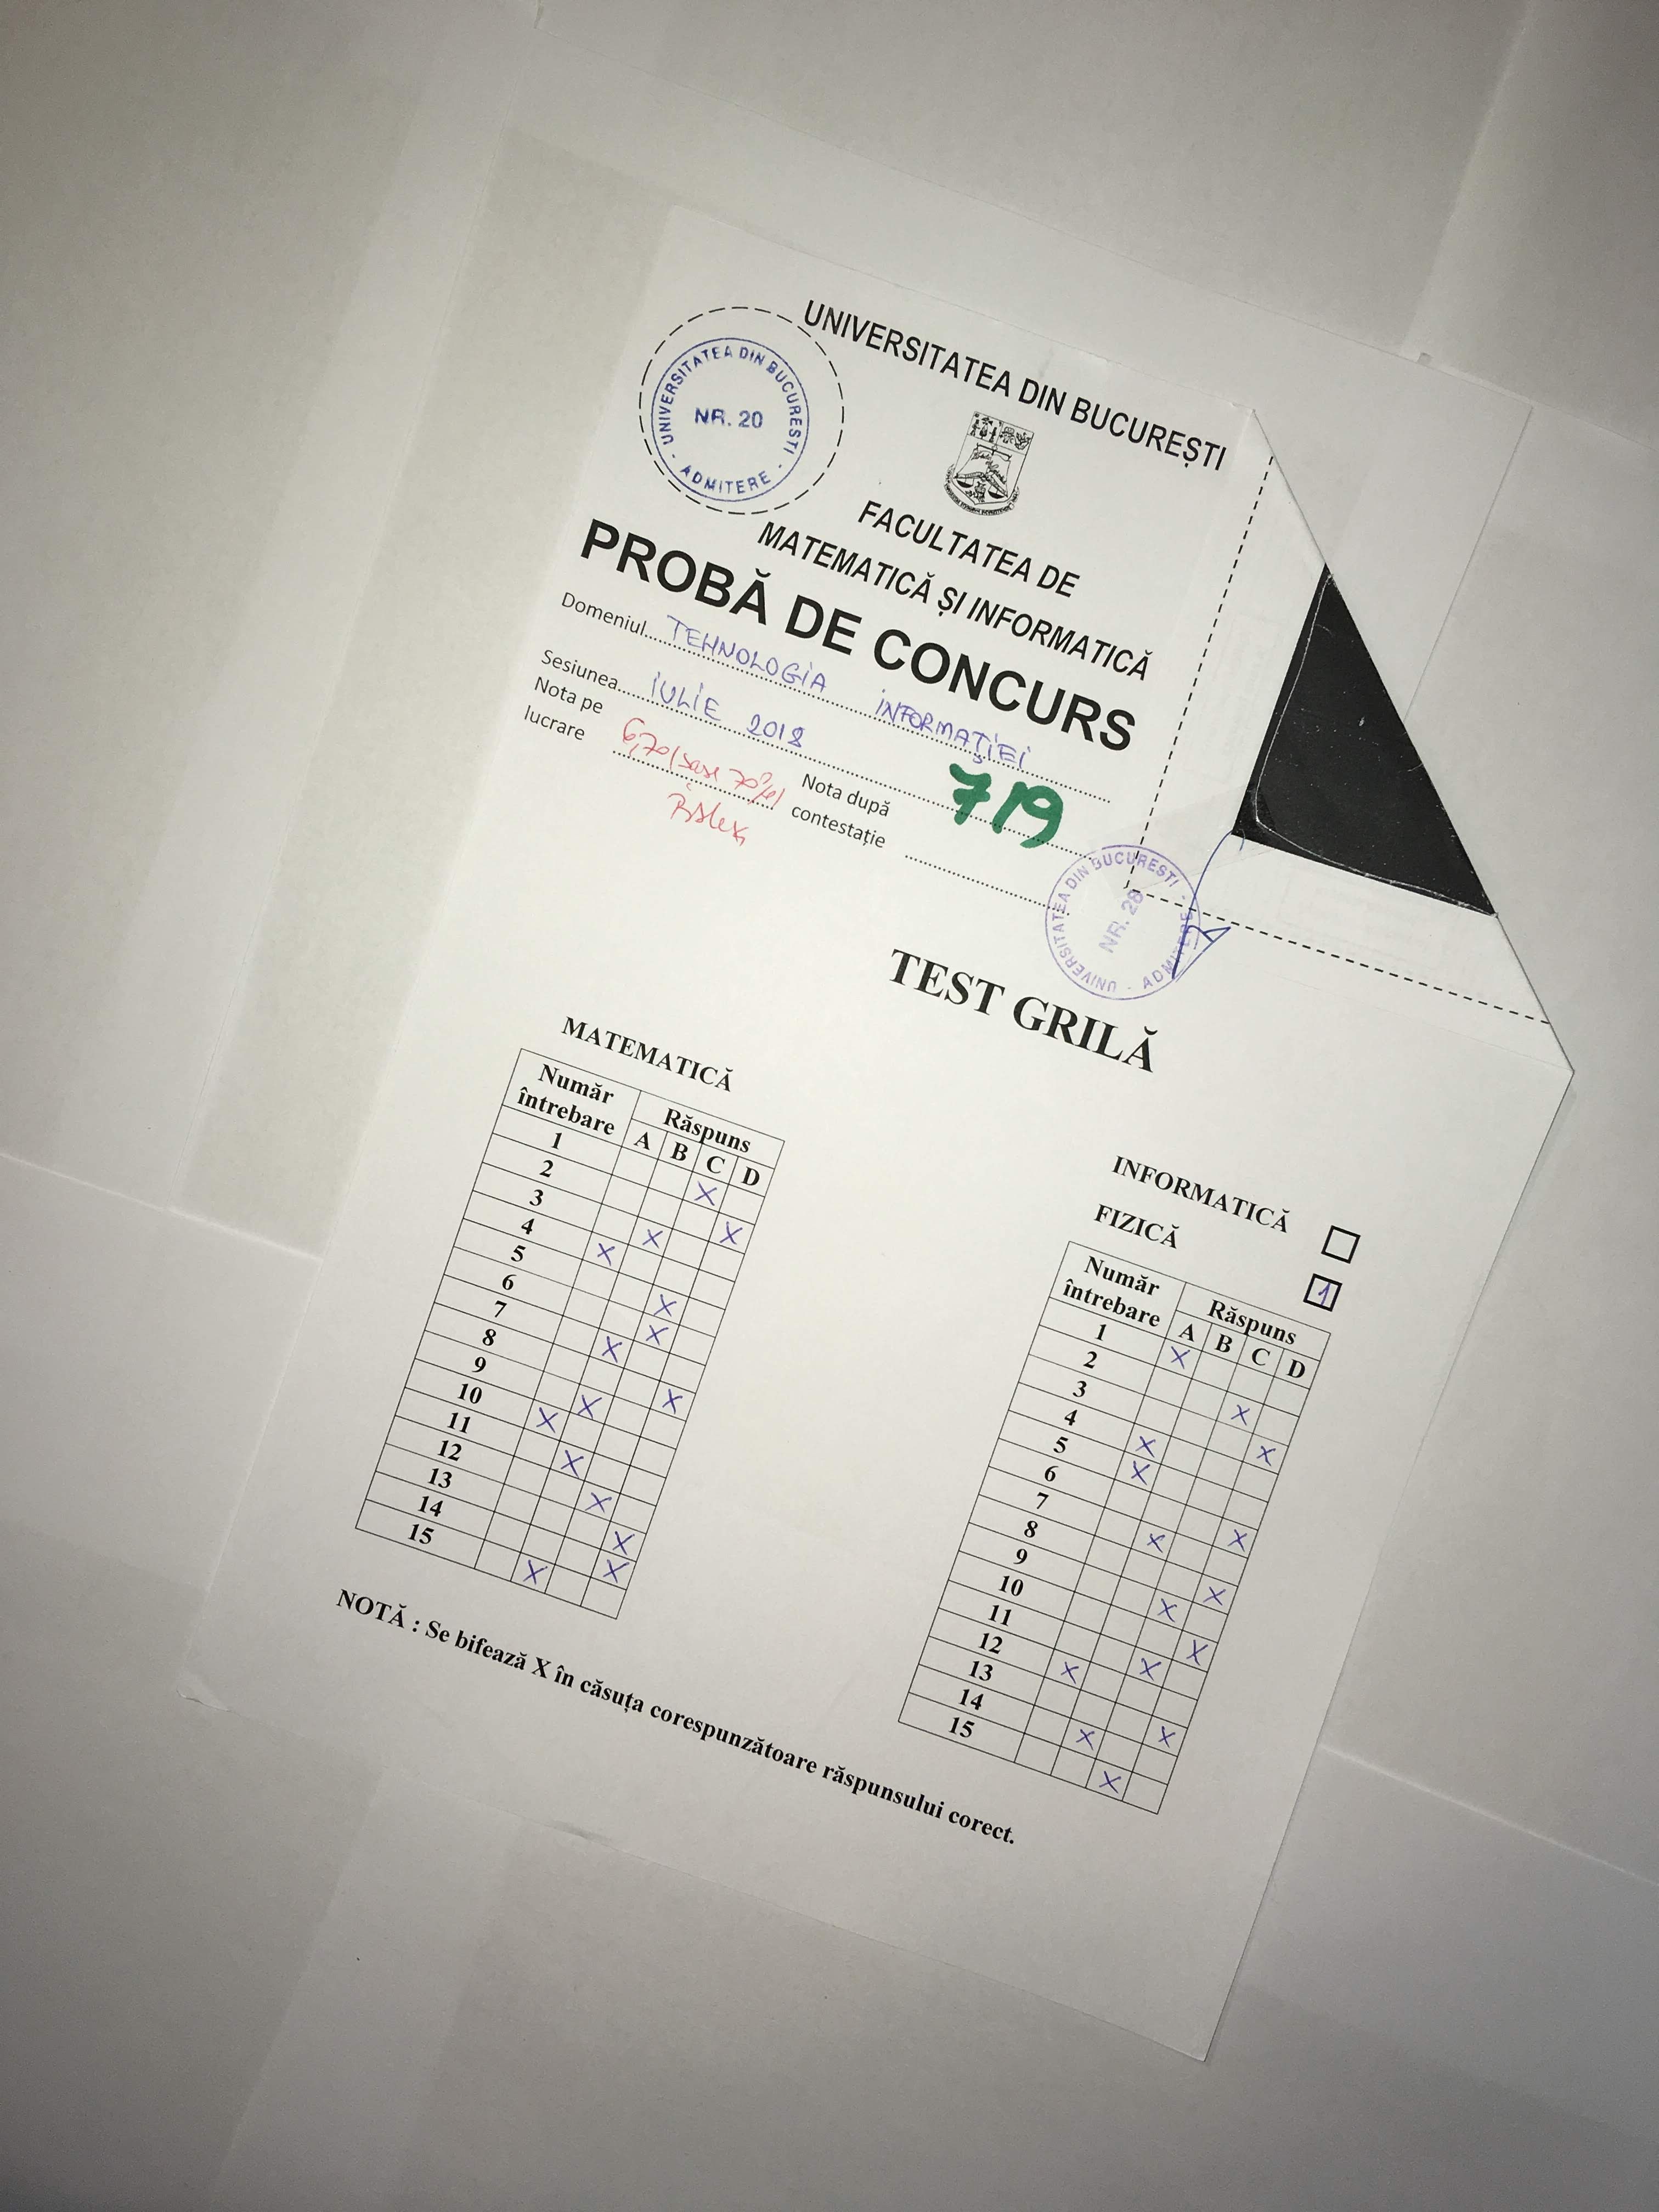 UNIVERSITATEA DIN BUCUREȘTI
UNIVERSITATEA DIN BUCURESTI
NR. 20
- ADMITERE -
FACULTATEA DE
MATEMATICĂ ȘI INFORMATICĂ
PROBĂ DE CONCURS
Domeniul..... TEHNOLOGIA INFORMAȚIEI
Sesiunea..... IULIE 2018
Nota pe
lucrare 6,70 (șase 70%)
Nota după
contestație
719
UNIVERSITATEA DIN BUCURESTI - ADMITERE -
NR. 28
TEST GRILĂ
MATEMATICĂ
Număr întrebare Răspuns
A B C D
1 X
2 X
3 X
4 X
5 X
6 X
7 X
8 X
9 X
10 X
11 X
12 X
13 X
14 X
15 X
INFORMATICĂ
FIZICĂ 1
Număr întrebare Răspuns
A B C D
1 X
2 X
3 X
4 X
5 X
6 X
7 X
8 X
9 X
10 X
11 X
12 X
13 X
14 X
15 X
NOTĂ : Se bifează X în căsuța corespunzătoare răspunsului corect.